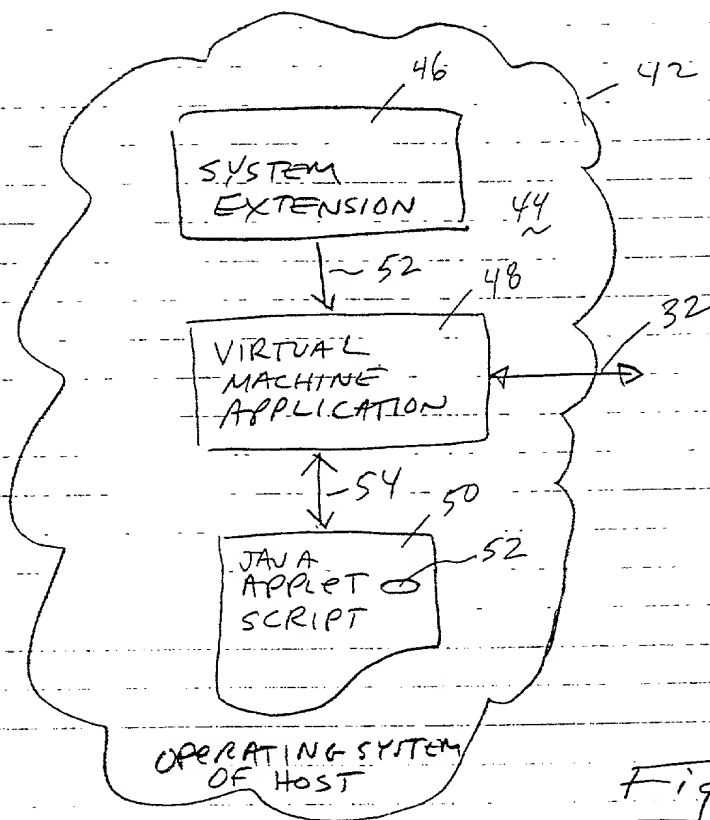 46
42
SYSTEM
EXTENSION
44
52
48
32
VIRTUAL
MACHINE
APPLICATION
54
50
52
JAVA
APPLET
SCRIPT
OPERATING SYSTEM
OF HOST
Fig